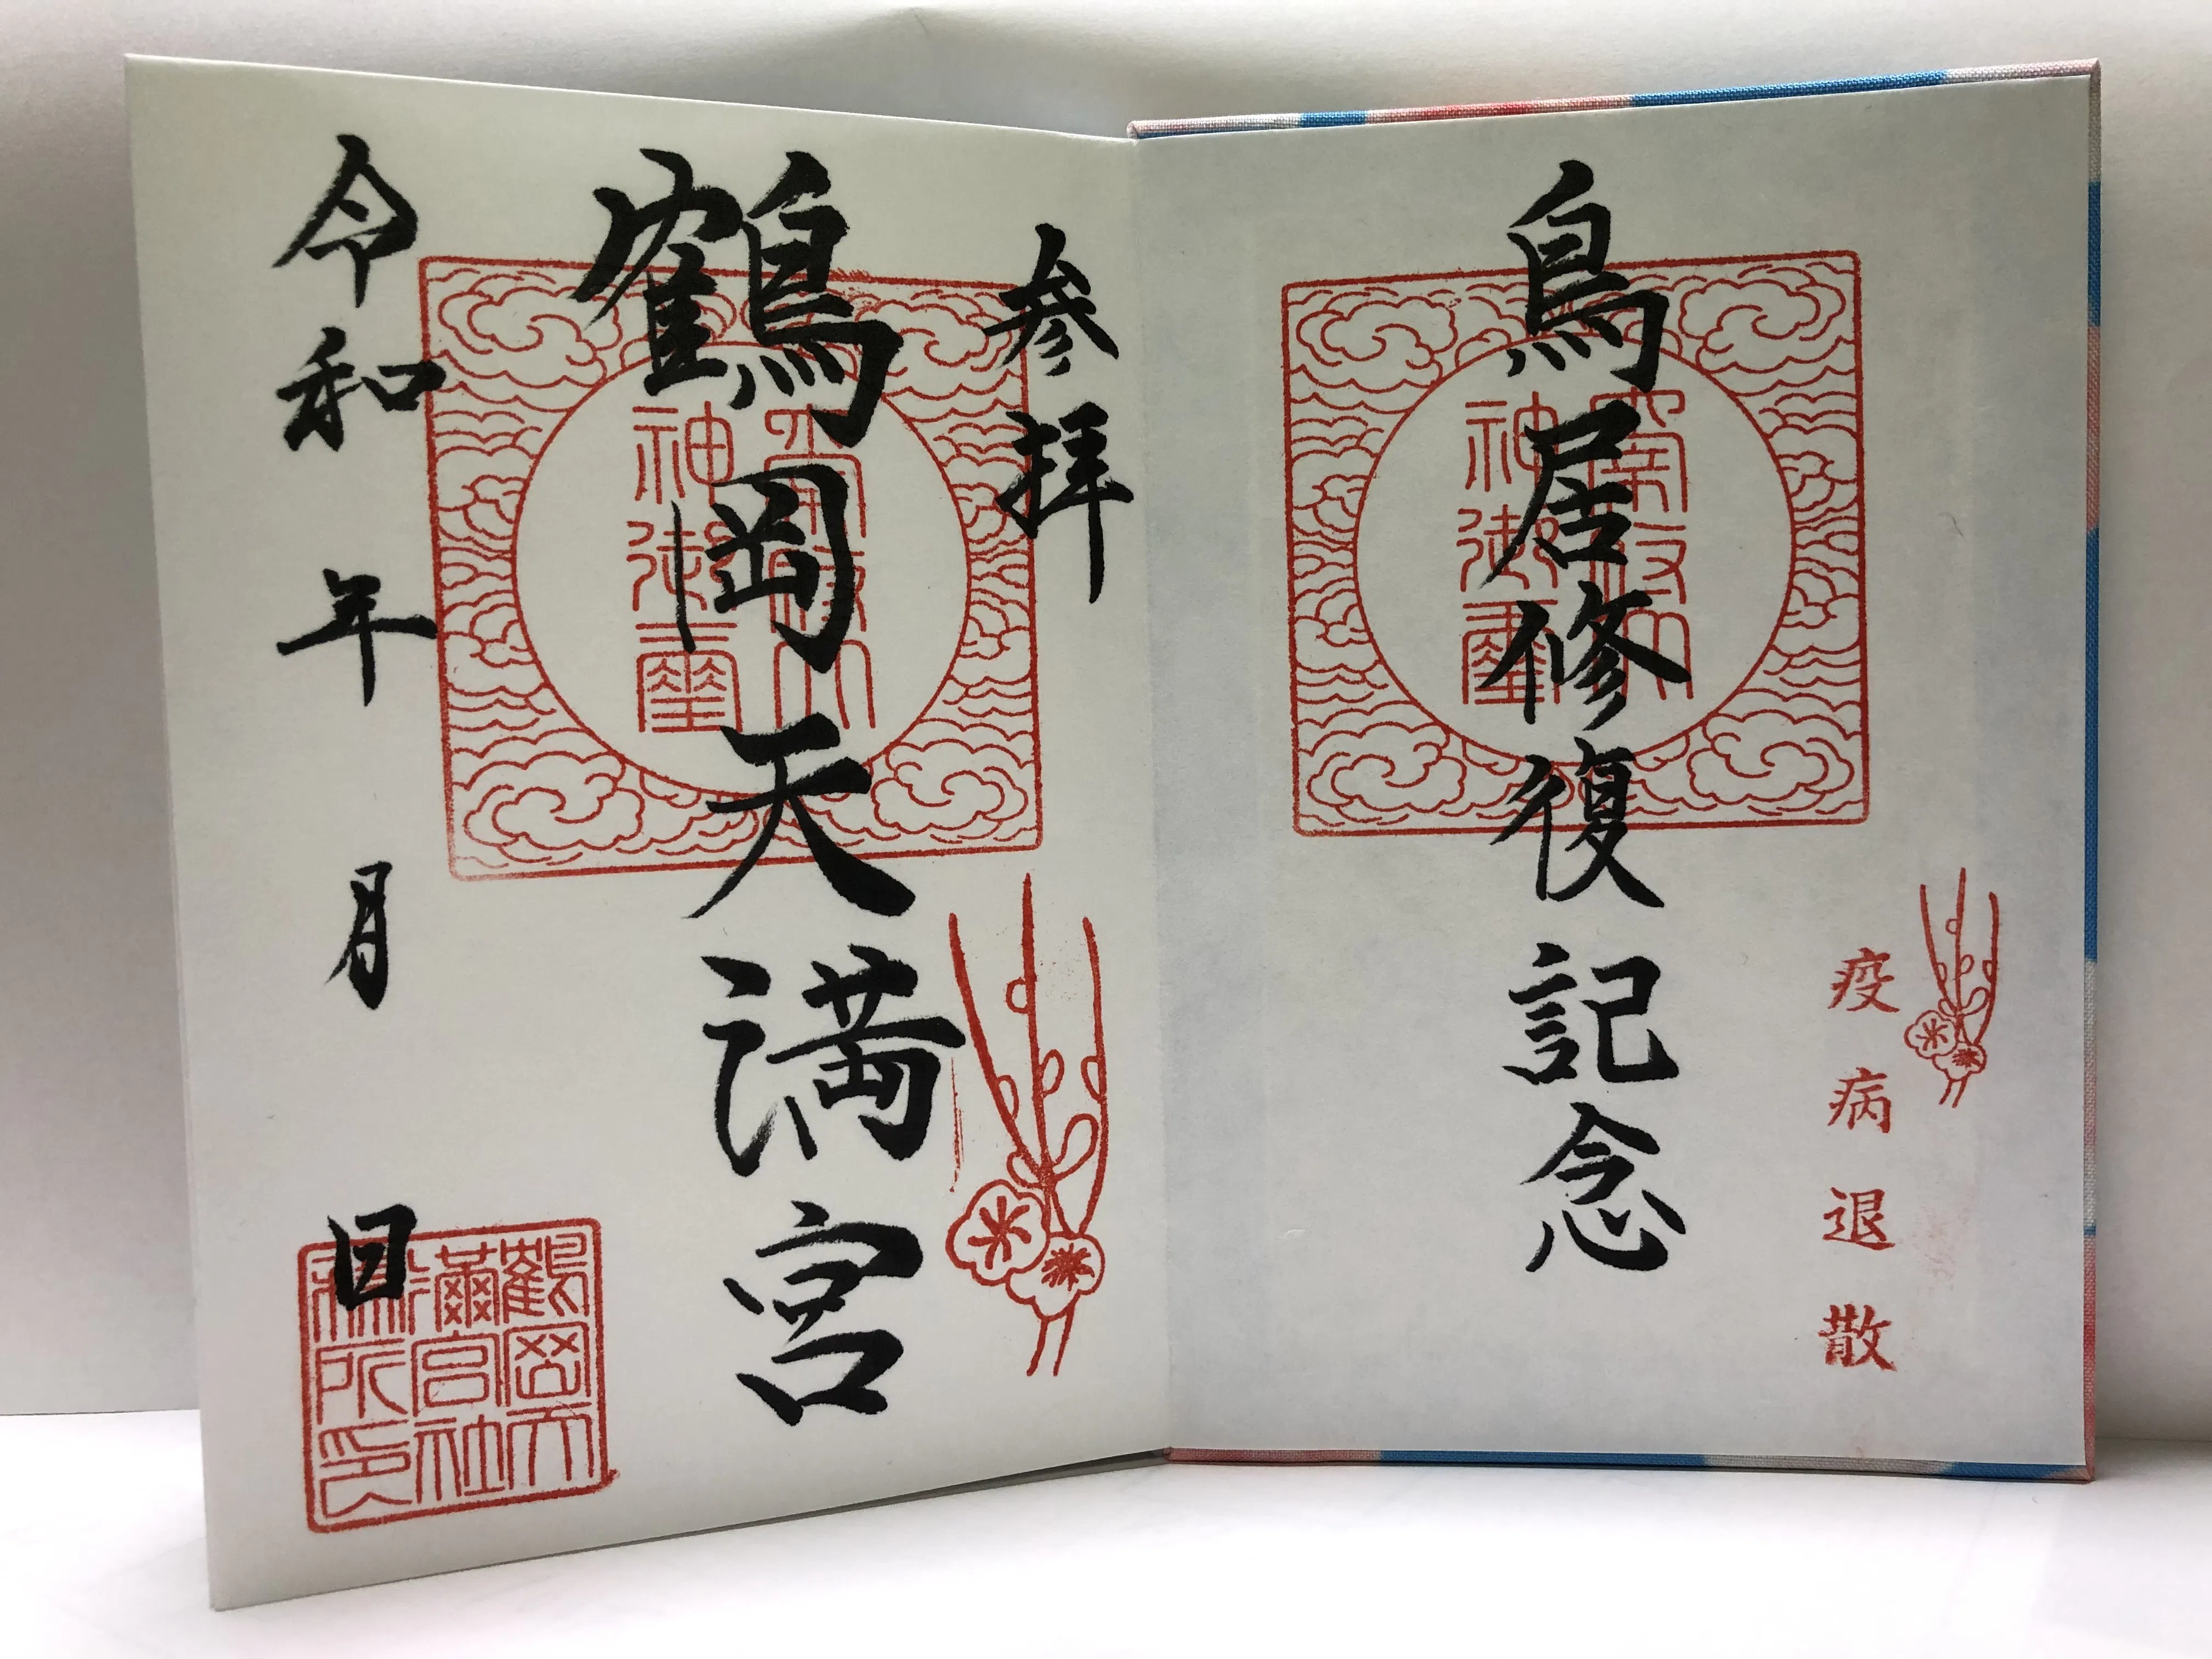 疫病退散
鳥居修復記念
神御璽
参拝
鶴岡天満宮
神御璽
令和 年 月 日
鶴岡天
滿宮社
務所印